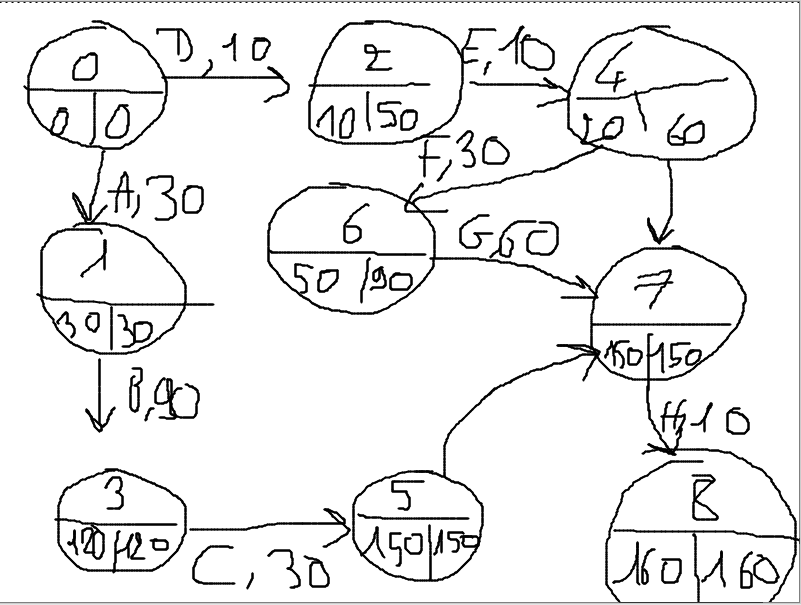 0
0 0
D, 10
2
10 50
E, 10
4
20 60
A, 30
F, 30
1
30 30
6
50 90
G, 60
7
150 150
B, 90
H, 10
3
120 120
C, 30
5
150 150
8
160 160